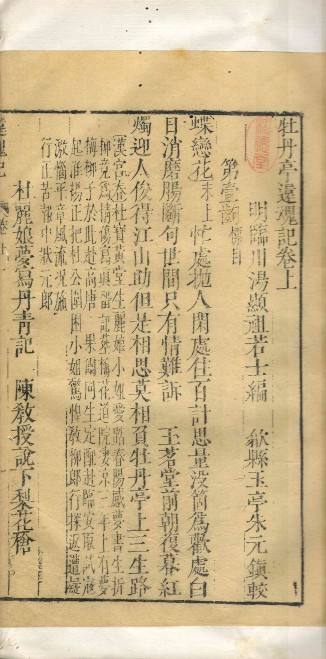 牡丹亭還魂記卷上
明臨川湯顯祖若士編　歙縣玉亭朱元鎮較
第壹齣　標目
蝶戀花末上忙處拋人閑處住百計思量没箇爲歡處白
日消磨腸斷句世間只有情難訴　玉茗堂前朝復暮紅
燭迎人俊得江山助但是相思莫相負牡丹亭上三生路
漢宮春杜寶黃堂生麗娘小姐愛踏春陽感夢書生折
柳竟爲情傷寫真留記葬梅花道院凄凉三年上有夢
梅柳子於此赴高唐　果爾回生定配赴臨安取試寇
起淮揚正把杜公圍困小姐驚惶教柳郎行探返遭疑
激惱平章風流況施
行正苦報中狀元郎
杜麗娘夢寫丹青記　陳教授說下梨花槍